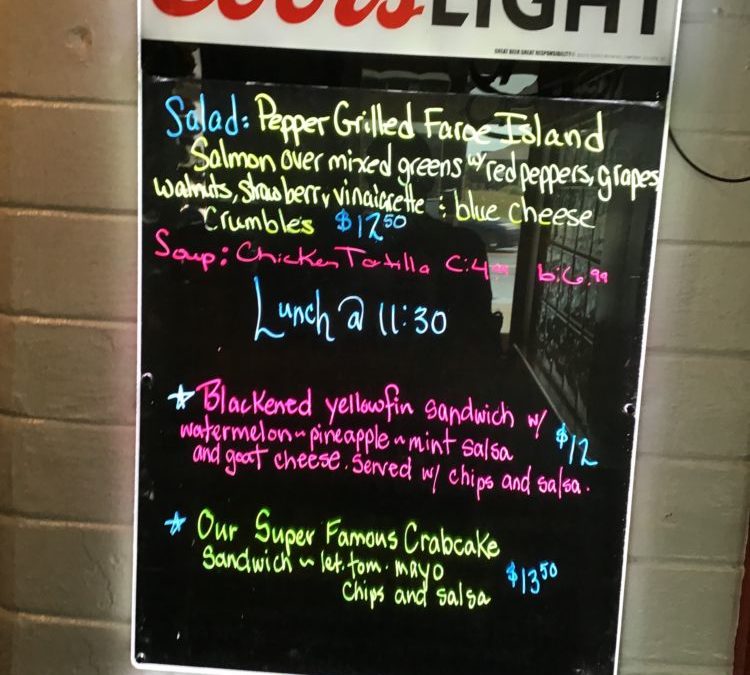 Coors LIGHT
GREAT BEER GREAT RESPONSIBILITY
Salad: Pepper Grilled Faroe Island
Salmon over mixed greens w/ red peppers, grapes,
walnuts, strawberry vinaigrette & blue cheese
Crumbles $12.50
Soup: Chicken Tortilla C:4.99 b:6.99
Lunch @ 11:30
☆ Blackened yellowfin sandwich w/ $12
watermelon~pineapple~mint salsa
and goat cheese. Served w/ chips and salsa.
☆ Our Super Famous Crabcake
Sandwich ~ let. tom. mayo $13.50
Chips and salsa